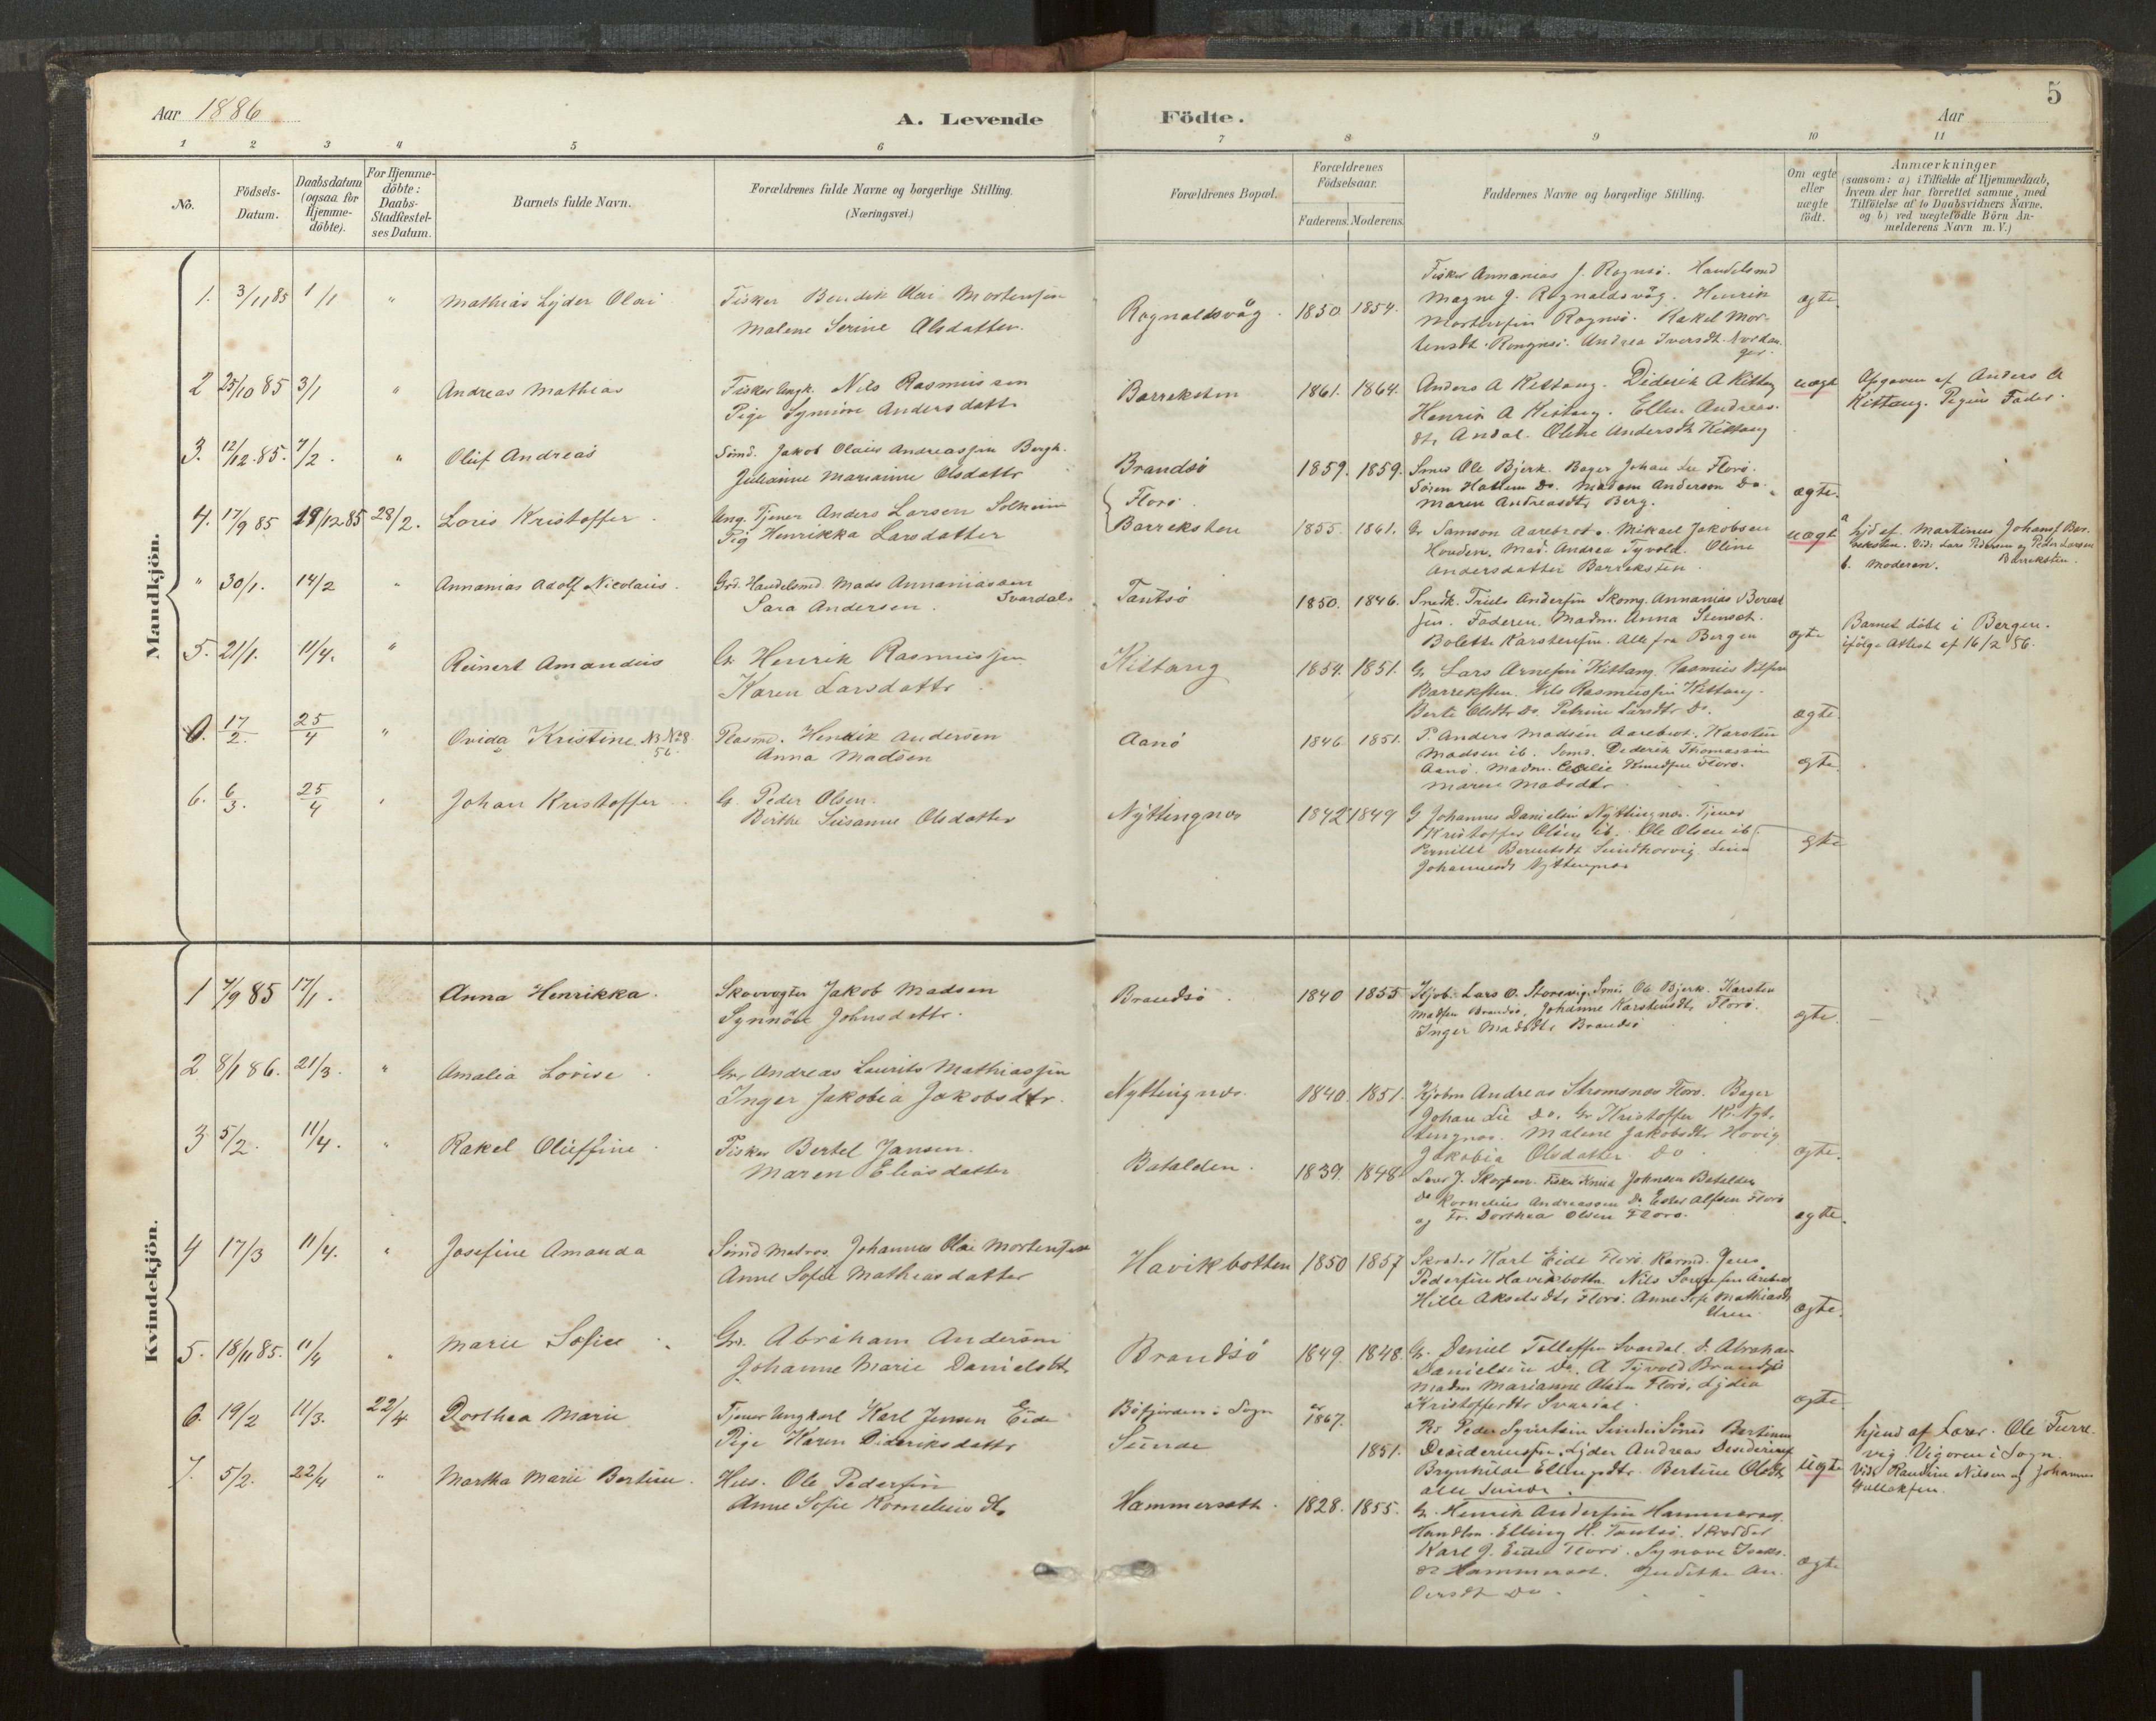 Aar 1886
A. Levende
Födte.
Aar
5
1 2 3 4 5 6 7 8 9 10 11
No.
Födsels-
Datum.
Daabsdatum
(ogsaa for
Hjemme-
döbte).
For Hjemme-
döbte:
Daabs-
Stadfæstel-
ses Datum.
Barnets fulde Navn.
Forældrenes fulde Navne og borgerlige Stilling.
(Næringsvei.)
Forældrenes Bopæl.
Forældrenes
Födselsaar.
Faderens. Moderens.
Faddernes Navne og borgerlige Stilling.
Om ægte
eller
uægte
födt.
Anmærkninger
(saasom: a) i Tilfælde af Hjemmedaab,
hvem der har forrettet samme, med
Tilföielse af to Daabsvidners Navne,
og b) ved uægtefödte Börn An-
melderens Navn m. V.)
Mandkjön.
1. 3/11 85 1/1 " Mathias Lyder Olai
Fisker Bendik Olai Mortensen
Malene Serine Olsdatter.
Rognaldsvåg. 1850. 1854.
Fisker Annanias J. Rognsö. Handelsmd
Magne J. Rognaldsvåg. Henrik
Mortensen Rognsö. Rakel Mor-
tensdt. Rongnsö. Andrea Iversdt.
ægte.
2 25/10 85 3/1 " Andreas Mathias
Fisker Ungk. Nils Rasmussen
Pige Synnöve Andersdatt.
Barreksten 1861. 1864.
Anders A Kittang. Diderik A Kittang
Henrik A Kittang. Ellen Andreas-
dt. Andal. Oline Andersdt Kittang
uægt
Opgaven af Anders A
Kittang. Pigens Fader.
3. 12/12. 85. 7/2. " Oluf Andreas
Smd. Jakob Olaus Andreassen Bergh.
Julianne Marianne Olsdattr
Brandsö 1859. 1859.
Smed Ole Bjerk. Bager Johan Lie Florö.
Sören Hatlem Do. Madam Anderson Do.
Maren Andreasdtr Berg.
ægte.
4. 17/9 85 19/12 85 28/2. Loris Kristoffer.
Ung. Tjener Anders Larsen Solheim
Pig Henrikka Larsdatter
Florö
Barreksten 1855 1861.
Gr Samson Aarebrot. Mikael Jakobsen
Hovden. Mad. Andrea Tyvold. Oline
Andersdatter Barreksten.
uægt
a hjd af. Martinus Johans. Bar-
reksten. Vid: Lars Pedersen og Peder Larsen
b. Moderen. Barreksten.
" 30/1. 14/2 " Annanias Adolf Nicolaus.
Grd. Handelsmd Mads Annaniassen
Svardal.
Sara Andersen.
Tansö 1850. 1846.
Snedk. Truls Andersen Skomg. Annanias Berent
sen. Faderen. Madm. Anna Stenset.
Bolette Karstensen. Alle fra Bergen
ægte
Barnet döbt i Bergen.
ifölge Attest af 16/2 86.
5. 21/1. 11/4. " Reinert Amandus
Gr Henrik Rasmussen
Karen Larsdattr
Kittang 1854. 1851.
Gr Lars Arnesen Kittang. Rasmus Nilsen
Barreksten. Nils Rasmussen Kittang.
Berte Olsdtr Do. Petrine Larsdtr Do.
ægte.
0. 17/2. 25/4 " Ovida Kristine. N3 N28
56.
Plasmd. Henrik Andersen
Anna Madsen
Aanö 1846 1851.
P. Anders Madsen Aarebrot. Karsten
Madsen ib. Smd. Diderik Thomassen
Aanö. Madm. Cecelie Knudsen Florö.
Maren Madsdtr
ægte.
6. 6/3. 25/4 " Johan Kristoffer
G. Peder Olsen.
Birthe Susanne Olsdatter
Nyttingnes 1842 1849
G Johannes Danielsen Nyttingnes. Tjener
Kristoffer Olsen ib. Ole Olsen ib
Pernille Berentsdt Lina
Johannesdt Nyttingnes
ægte
Kvindekjön.
1 7/9 85 17/1. Anna Henrikka.
Skovvogter Jakob Madsen
Synnöve Johnsdattr.
Brandsö. 1840 1855
Kjöb. Lars O. Storevig. Smed Ole Bjerk. Karsten
Madsen Brandsö. Johanne Karstensdt, Florö.
Inger Madsdt, Brandsö
ægte.
2 8/1 86. 21/3. " Amalia Lovise.
Gr. Andreas Laurits Mathiassen
Inger Jakobia Jakobsdtr.
Nyttingnes. 1840. 1851.
Kjöbm Andreas Strömsnes Florö. Bager
Johan Lie Do. Gr Kristoffer K. Nyt-
tingnes. Malene Jakobsdtr Hovig
Jakobia Olsdatter Do
ægte.
3 5/2. 11/4. " Rakel Oluffine.
Fisker Bertel Jansen.
Maren Eliasdatter
Batalden. 1839. 1848
J. Skorpen. Fisker Knud Johnsen Batalden
Do Kornelius Andreassen Do Ester Alfsen Florö
og Fr. Dorthea Olsen Florö.
ægte.
4 17/3 11/4. " Josefine Amanda
Smd Matros. Johannes Olai Mortensen
Anne Sofie Mathiasdatter
Havikbotten 1850 1857
Skræder Karl Eide Florö. Jens
Pedersen Havikbotten. Nils Sörensen
Hille Akselsdtr Florö. Anne Sofie Mathiasdt
ægte.
5. 18/11 85. 11/4 " Marie Sofie.
Gr. Abraham Andersen
Johanne Marie Danielsdt.
Brandsö 1849. 1848.
G. Daniel Tollefsen Svardal. D. Abraham
Danielsen Do. A Tyvold Brandsö
Madm Marianne Olsen Florö. Lydia
Kristoffersdtr Svardal.
ægte.
6. 19/2 11/3. 22/4 Dorthea Marie
Tjener Ungkarl Karl Jensen Eide
Pige Karen Dideriksdattr
Böfjorden i Sogn
Sunde 1867. 1851.
Peder Sunde
Desideriussen. Lyder Andreas Desideriussen
Brynhilde Ellingsdtr. Bertine Olsdt.
alle Sunde.
uægte
hjemd af Lærer. Ole Turre-
vig Vigören i Sogn.
Vid: Randine Nilsen og Johannes
Gullaksen.
7. 5/2. 22/4 " Martha Marie Bertine.
Hus. Ole Pedersen
Anne Sofie Kornelius dt.
Hammersett. 1828. 1855.
Gr. Henrik Andersen Hammerset.
Handlm. Elling H. Tansö. Skredder
Karl J. Eide Florö. Synöve Isaks-
dt Hammerset. Judithe An-
dersdt Do.
ægte